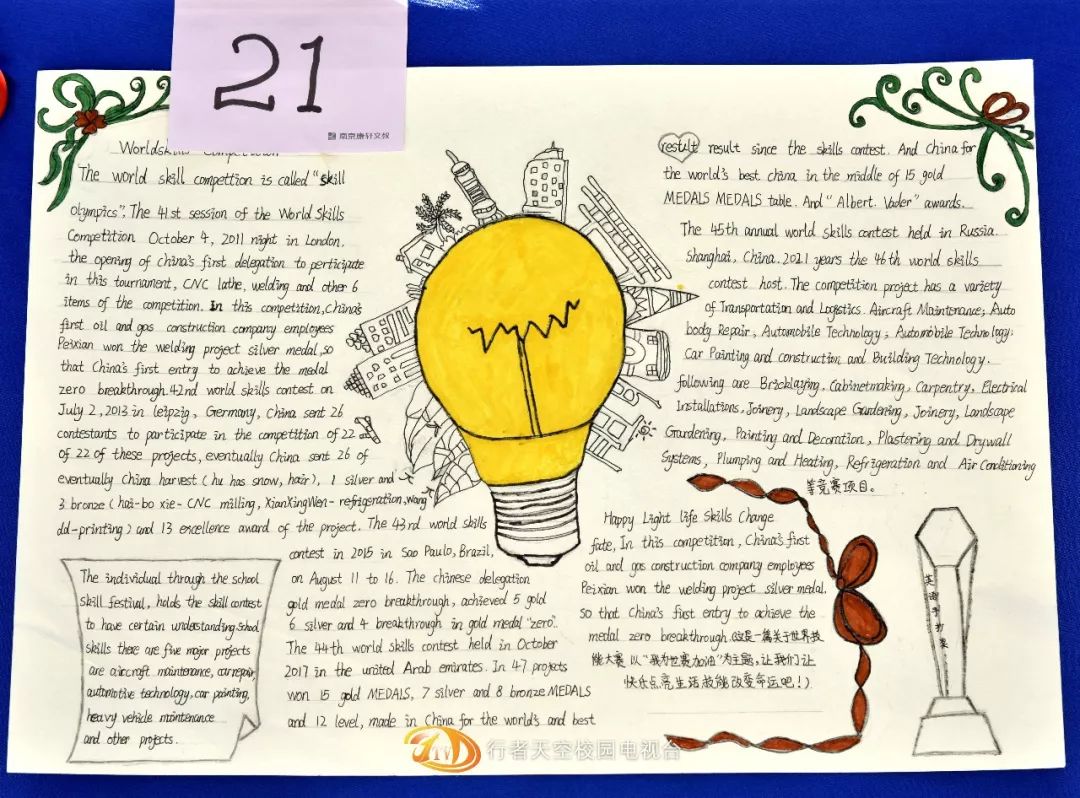 21
南京康轩文教
The world skill compettion is called "skill
Olympics". The 41.st session of the World Skills
Competition October 4, 2011 night in London.
the opening of China's first delegation to perticipate
in this tournament, CNC lathe, welding and other 6
items of the competition. In this competition, China's
first oil and gas construction company employees
Peixian won the welding project silver medal, so
that China's first entry to achieve the medal
zero breakthrough. 42nd world skills contest on
July 2, 2013 in leipzig, Germany, China sent 26
contestants to participate in the competition of 22
of 22 of these projects, eventually China sent 26 of
eventually China harvest (hu has snow, hair), 1 silver and
3 bronze (hai-bo xie- CNC milling, XianXingWen- refrigeration, wang
dd-printing) and 13 excellence award of the project. The 43rd world skills
contest in 2015 in Sao Paulo, Brazil,
on August 11 to 16. The chinese delegation
gold medal zero breakthrough, achieved 5 gold
6 silver and 4 breakthrough in gold medal "zero".
The 44th world skills contest held in October
2017 in the united Arab emirates. In 47 projects
won 15 gold MEDALS, 7 silver and 8 bronze MEDALS
and 12 level, made in China for the world's and best
The individual through the school
skill festival, holds the skill contest
to have certain understanding. School
skills there are five major projects
are aircraft maintenance, car repair,
automotive technology, car painting,
heavy vehicle maintenance
and other projects.
result result since the skills contest. And China for
the world's best china in the middle of 15 gold
MEDALS MEDALS table. And "Albert. Vader" awards.
The 45th annual world skills contest held in Russia.
Shanghai, China. 2021 years the 46th world skills
contest host. The competition project has a variety
of Transportation and Logistics. Aircraft Maintenance, Auto
body Repair, Automobile Technology, Automobile Technology;
Car Painting and construction and Building Technology.
following are Bricklaying, Cabinetmaking, Carpentry, Electrical
Installations, Joinery, Landscape Gardening, Joinery, Landscape
Gardening, Painting and Decoration, Plastering and Drywall
Systems, Plumping and Heating, Refrigeration and Air Conditioning
等竞赛项目。
Happy Light life Skills Change
fate, In this competition, China's first
oil and gas construction company employees
Peixian won the welding project silver medal.
so that China's first entry to achieve the
medal zero breakthrough. (这是一篇关于世界技
能大赛 以“我为世赛加油”为主题, 让我们让
快乐点亮生活技能改变命运吧!)
行者天空校园电视台